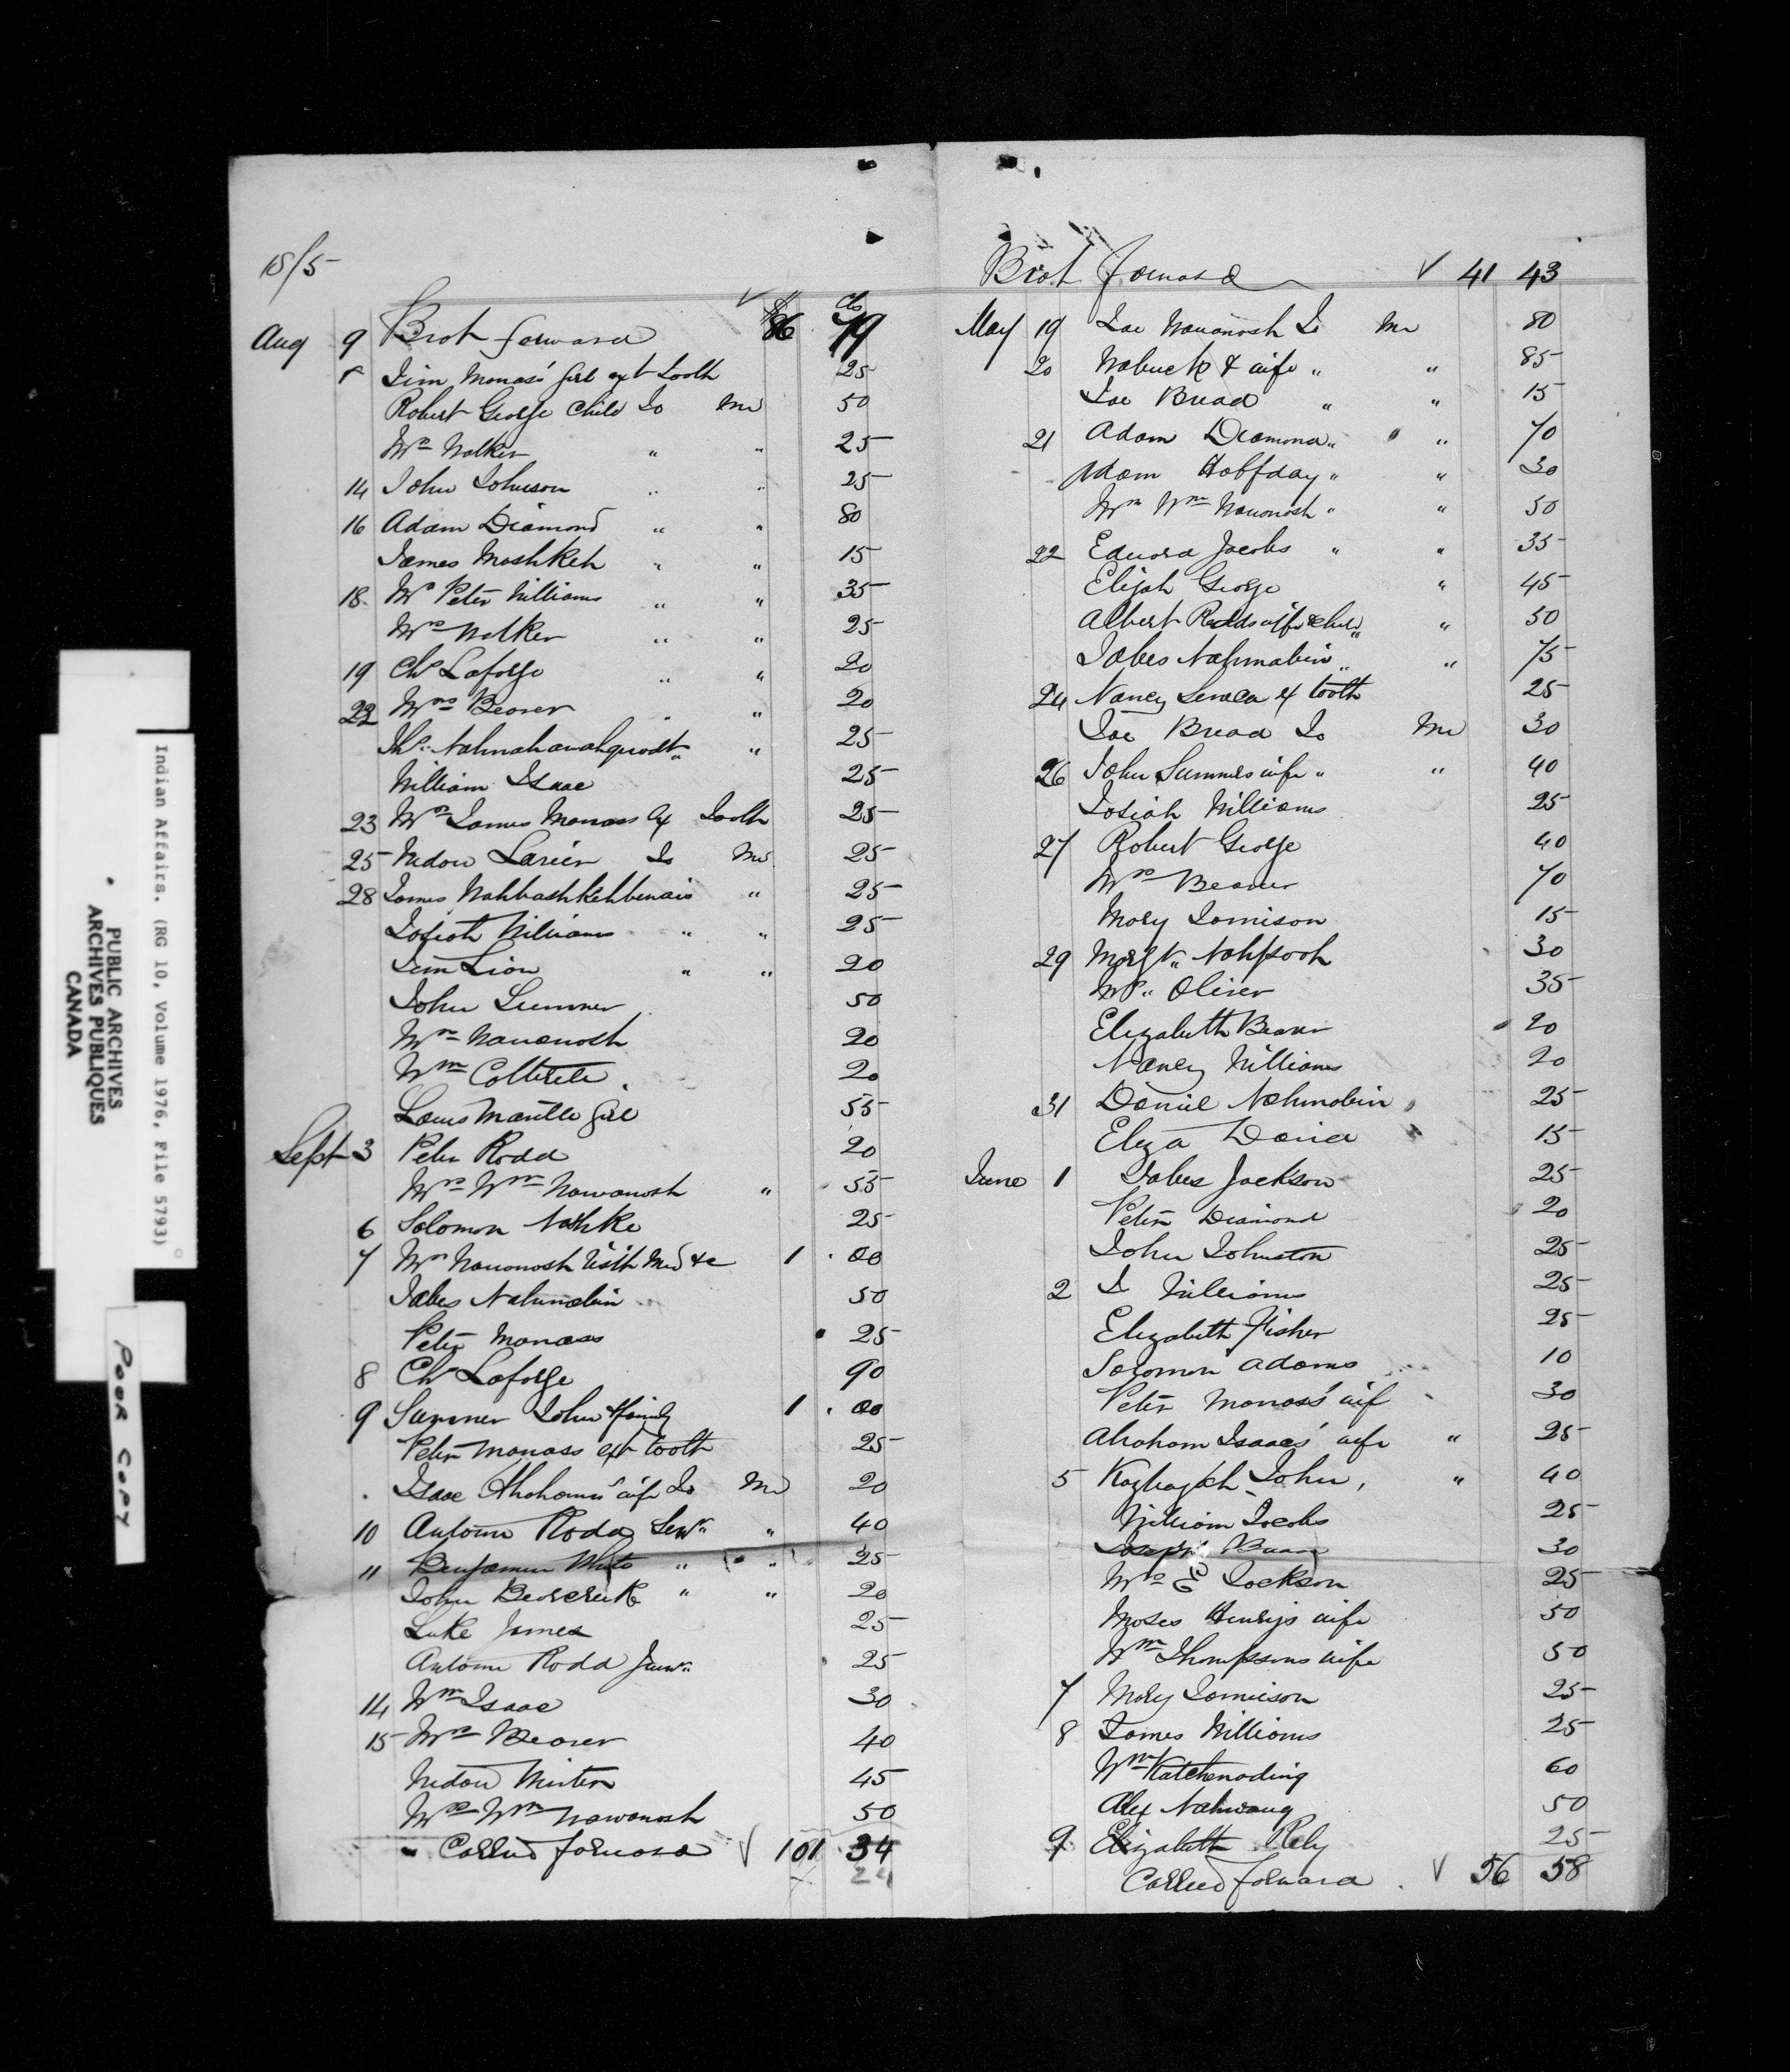 18/5
Aug 9 Brot forward $86 cts 79
Jim Manass' girl ext tooth 25
Robert George Child To Me 50
Mrs Walker " " 25
14 John Johnson " " 25
16 Adam Diamond " " 80
James Mashkeh " " 15
18 Mrs Peter Williams " " 35
Mrs Walker " " 25
19 Chs Laforge " " 20
22 Mrs Beaver " " 20
Ths Nahmahawahquodt " " 25
William Isaac 25
23 Mrs James Manass Ex Tooth 25
25 Widow To Me 25
28 James Wahbashkehbenais " 25
Josiah Williams " " 25
Jim Lion " " 20
John Sumner 50
Mrs Wawanosh 20
Wm 20
Girl 55
Sept 3 Peter Rodd 20
Mrs Wm Wawanosh " 55
6 Solomon 25
7 Mrs Wawanosh Visit Med &c 1 . 00
Jabes Nahmabin 50
Peter Manass 25
8 Chs Laforge 90
9 Sumner John & family 1 . 00
Peter Manass ext tooth 25
Isaac Abrahams' wife To Me 20
10 Antoine Rodd Senr " 40
11 Benjamin White " " 25
John " " 20
Luke James 25
Antoine Rodd Junr 25
14 Wm Isaac 30
15 Mrs Beaver 40
Widow 45
Mrs Wm Wawanosh 50
Carried forward √ 101 34
24
Brot forward √ 41 43
May 19 Joe Wawanosh To Me 80
20 Wabuck & wife " " 85
Joe Bread " " 15
21 Adam Diamond " " 70
Adam Halfday " " 30
Mrs Wm Wawanosh " " 50
22 Edward Jacobs " " 35
Elijah George " 45
Albert Rodds wife & child " " 50
Jabes Nahmabin " " 75
24 Nancy Seneca ex tooth 25
Joe Bread To Me 30
26 John Sumners wife " " 40
Josiah Williams 25
27 Robert George 40
Mrs Beaver 70
Mary Jamison 15
29 Margt Nahpooh 30
Oliver 35
Elizabeth Beaver 20
Nancy Williams 20
31 Daniel Nahmabin 25
Eliza David 15
June 1 Jabes Jackson 25
Peter Diamond 20
John Johnston 25
2 J Williams 25
Elizabeth Fisher 25
Solomon Adams 10
Peter Manass' wife 30
Abraham Isaacs' wife " 25
5 John, " 40
William Jacobs 25
Joseph Bread 30
Mrs E Jackson 25
Moses Henrys wife 50
Wm Thompsons wife 50
7 Mary Jamieson 25
8 James Williams 25
Wm Katchenoding 60
Alex Nahwang 50
9 Elizabeth Rely 25
Carried forward . √ 56 58
Indian Affairs. (RG 10, Volume 1976, File 5793)
PUBLIC ARCHIVES
ARCHIVES PUBLIQUES
CANADA
POOR COPY